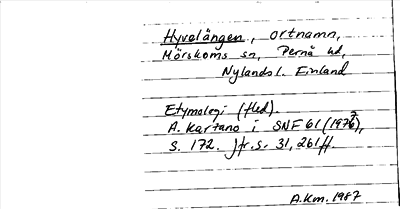 Hyvelängen, ortnamn,
Mörskoms sn, Pernå hd,
Nylands l. Finland
Etymologi (fled).
A. Kartano i SNF 61 (1973),
S. 172. Jfr. s. 31, 261 ff.
A.Km. 1987